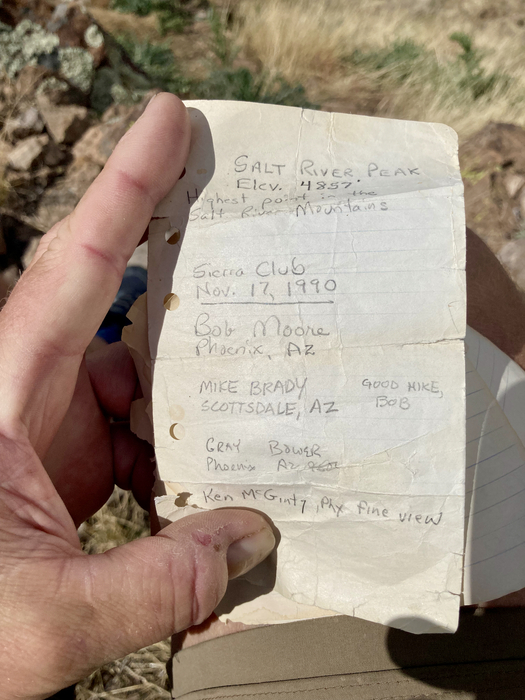 SALT RIVER PEAK
Elev. 4857'
Highest point in the
Salt River Mountains
Sierra Club
Nov. 17, 1990
Bob Moore
Phoenix, AZ
MIKE BRADY
SCOTTSDALE, AZ
GOOD HIKE,
BOB
GRAY BOWER
Phoenix AZ
Ken McGinty, Phx fine view